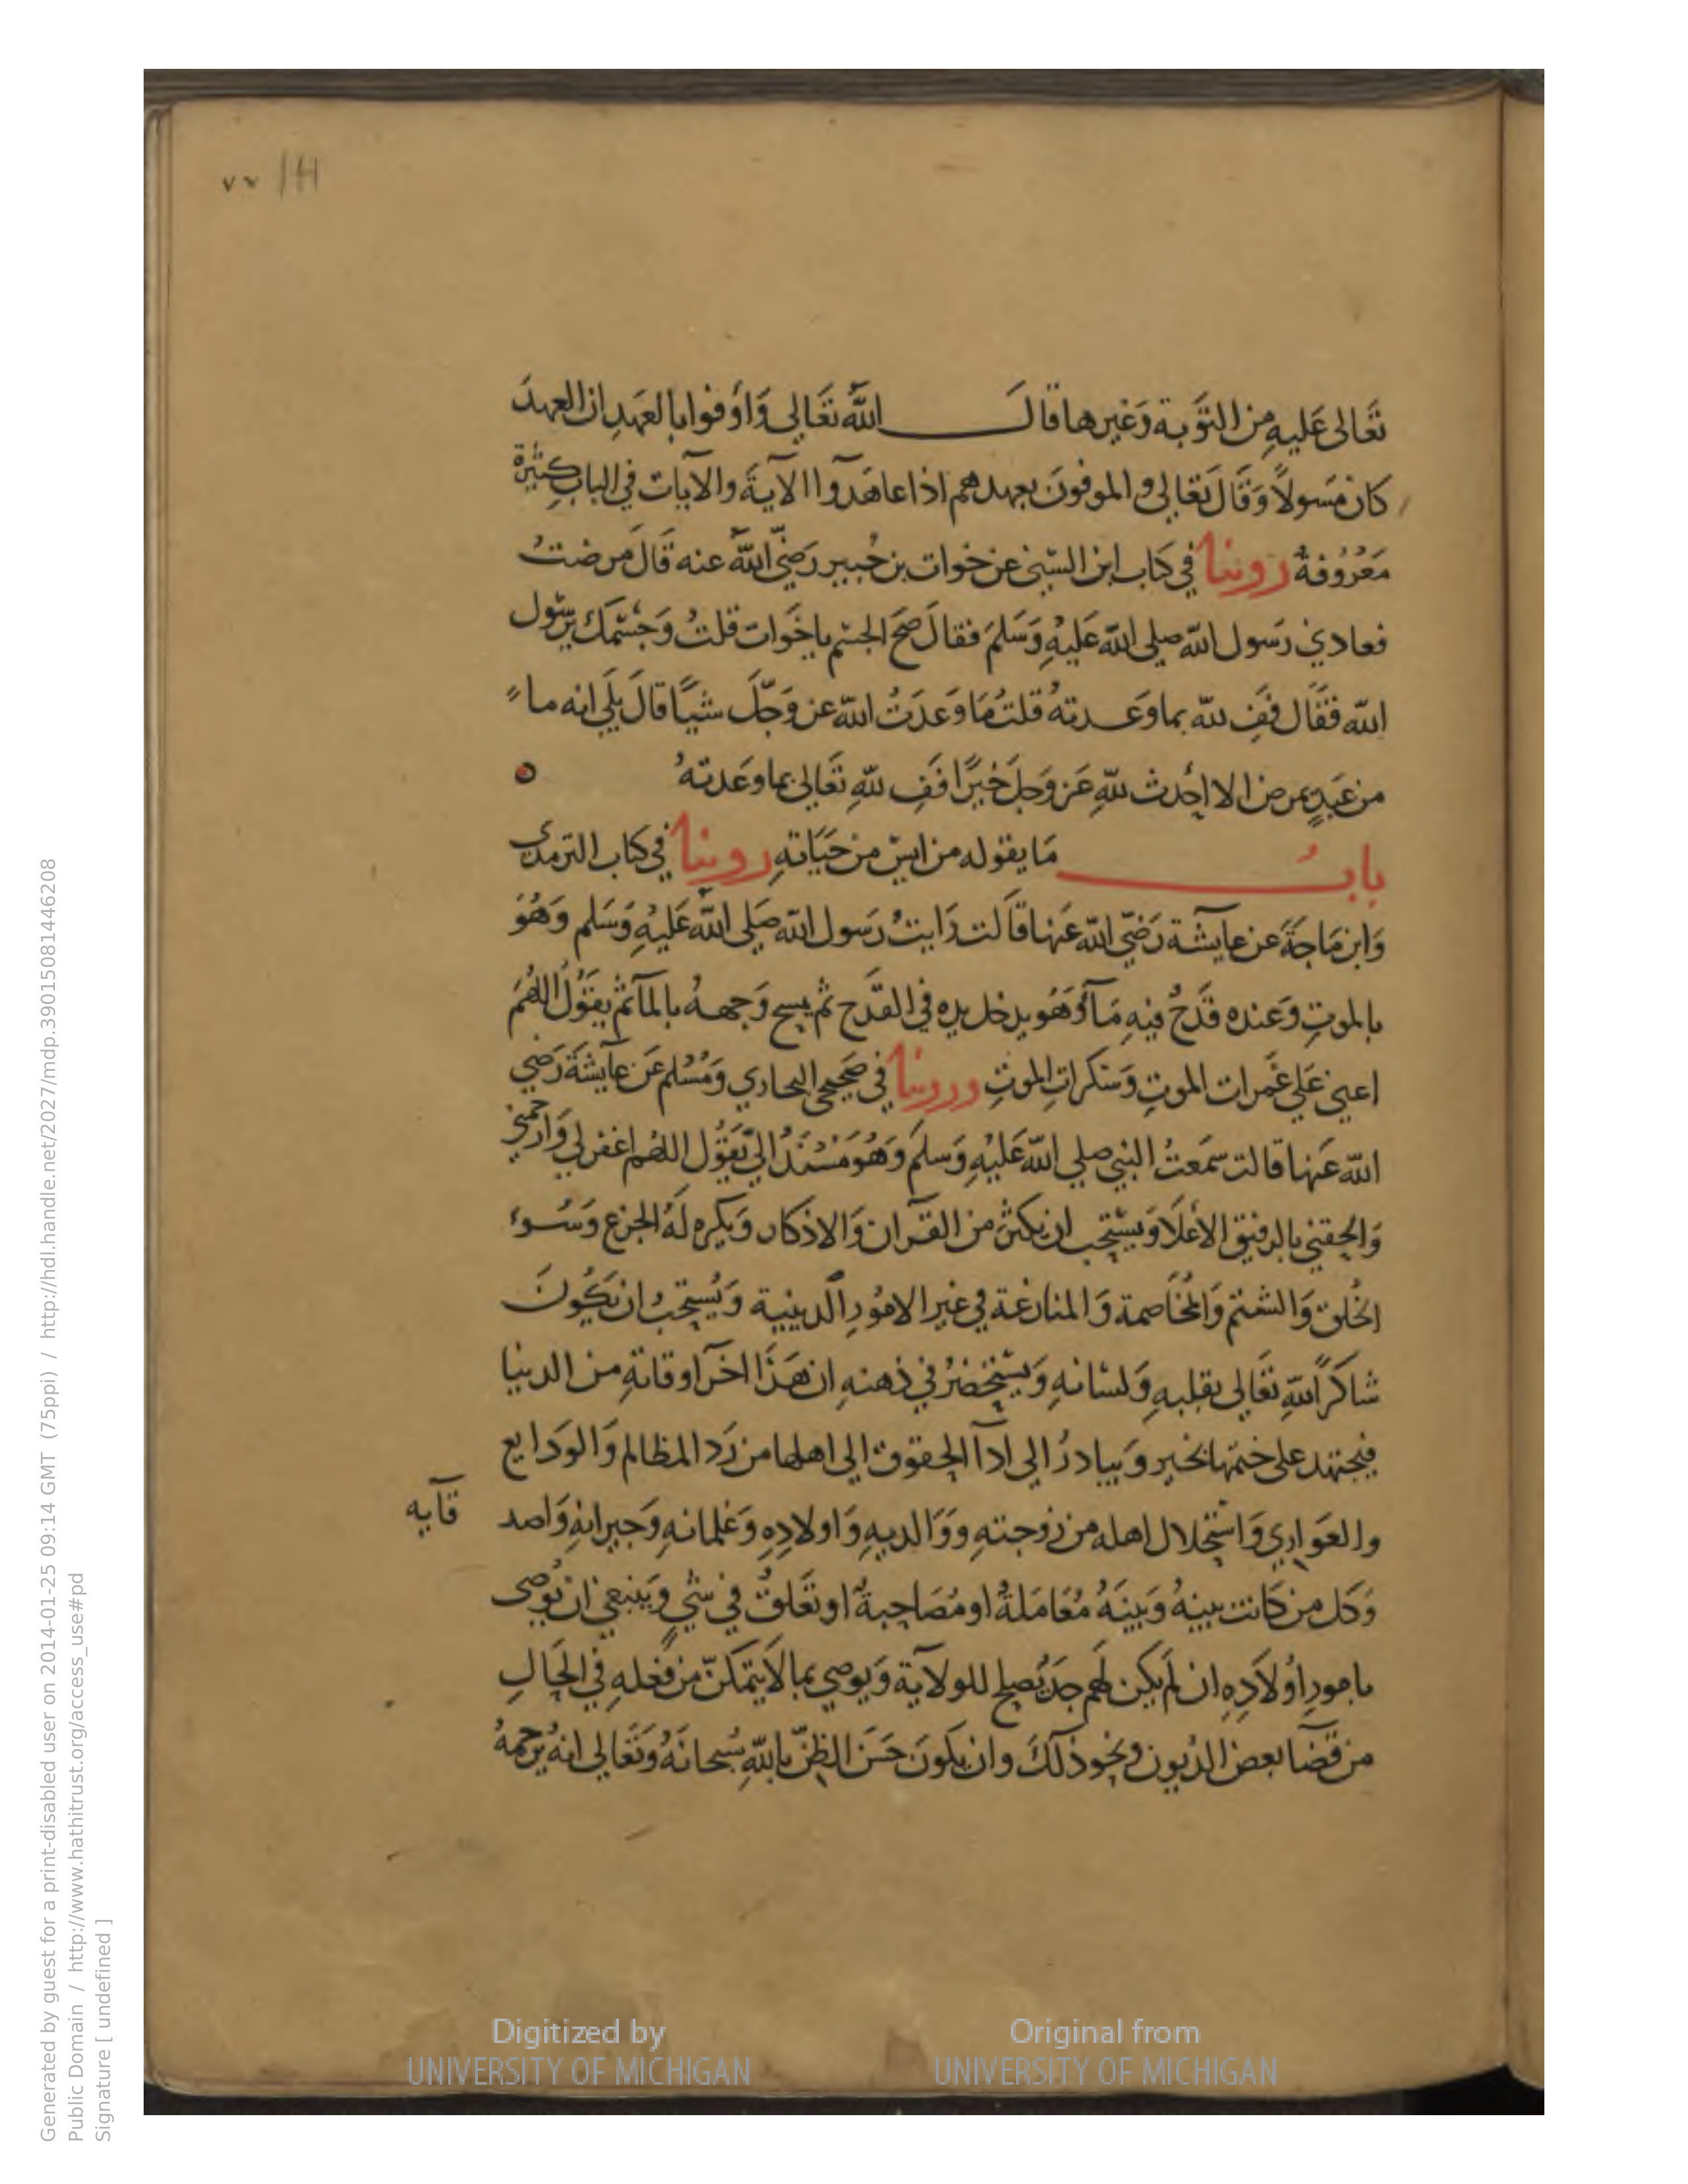 ٧٧ 141
تَعَالى عَليهِ من التوَبة وَغيرها قالَ اللَّه تَعَالي وَأوفوا بالعَهدِ ان العهدَ
كان مَسولاً وَقَالَ تَعَالي والموفونَ بعهدهم اذا عاهَدوا الآيةَ والآيات في الباب كثيرة
مَعرُوفة روينا في كتاب ابن السّني عن خوات بن جُبيرٍ رَضيَ اللَّه عنه قَالَ مرضتُ
فعادني رَسول اللَّه صلى اللَّه عَليهِ وَسَلمَ فقالَ صَحَ الجسم ياخَوات قلتُ وَجسْمكَ يرَسُول
اللَّه فقَال فَفِ للَّه بما وَعدتهُ قلتُ مَا وَعدَتُ اللَّه عز وَجَّلَ شيًا قالَ بَلَي انه ما
من عَبدٍ يمرض الا احْدث للَّهِ عَز وَجلَ خيرًا فَفِ للَّهِ تَعَالىَ بما وعَدتهُ
بابُ مَا يقوله من ايسَ من حَيَاتهِ روينا في كتاب الترمذى
وَابن مَاجَةَ عن عايشة رَضيّ اللَّه عَنها قَالَت رَايتُ رَسول اللَّه صَلى اللَّه عَليهِ وَسَلم وَهُوَ
بالموتِ وَعنده قَدَحٌ فيهِ مَآءٌ وَهُو يدخل يده في القدَح ثم يمسح وَجههُ بالمآ ثم يقَوُلُ اللهُمَ
اعني عَلي غَمرات الموتِ وَسَكراتِ الموتِ وروينا في صَحيحي البخاري وَمُسْلم عَن عَايشَة رَضي
اللَّه عَنها قالت سَمَعتُ النبي صلي اللَّه عَليهِ وَسلَم وَهُو مَسْتنَدٌ اليَّ يقَوُل اللهُم اغفر لي وَارحمني
وَالحِقني بالرفيق الأعلا وَيسْتحِب ان يكثرَ من القرآن وَالاذكار وَيكره لهُ الجزع وَسُوء
الخُلق وَالشتم وَالمُخَاصمة وَالمنازعَة في غير الامُورِ الدينية وَيُستحَبُ ان يَكُونَ
شاكرًا للَّهِ تَعَالى بقلبهِ وَلسَانهِ وَيسْتحْضرُ في ذهنهِ ان هَذَا اخَر اوقاتهِ من الدنيا
فيجتهد على ختمها بخير وَيبادرُ الي ادآ الحِقوق الي اهلها من رَد المظالم وَالودَايع
والعوَاري وَاستْحِلال اهله من زوجتهِ وَوَالديهِ وَاولادهِ وَغلمانهِ وَجيرانهِ وَاصد قآيه
وَكل من كَانت بينهُ وَبينَهُ مُعَامَلةٌ او مُصَاحِبةٌ او تعَلقٌ في شي وَينبغي ان يوُصى
بامورِ اَوُلاَدِهِ ان لم يكن لهم جدٌ يصلح للولاية وَيوصي بما لاَ يتمَكنّ من فعلهِ في الحِالِ
من قضَا بعض الديُون وَنحِو ذلكَ وان يكونَ حَسَن الظنّ بِاللَّهِ سُبحانَهُ وَتَعَالي انه يرَحمهُ
Digitized by
UNIVERSITY OF MICHIGAN
Original from
UNIVERSITY OF MICHIGAN
Generated by guest for a print-disabled user on 2014-01-25 09:14 GMT (75ppi) / http://hdl.handle.net/2027/mdp.39015081446208
Public Domain / http://www.hathitrust.org/access_use#pd
Signature [ undefined ]